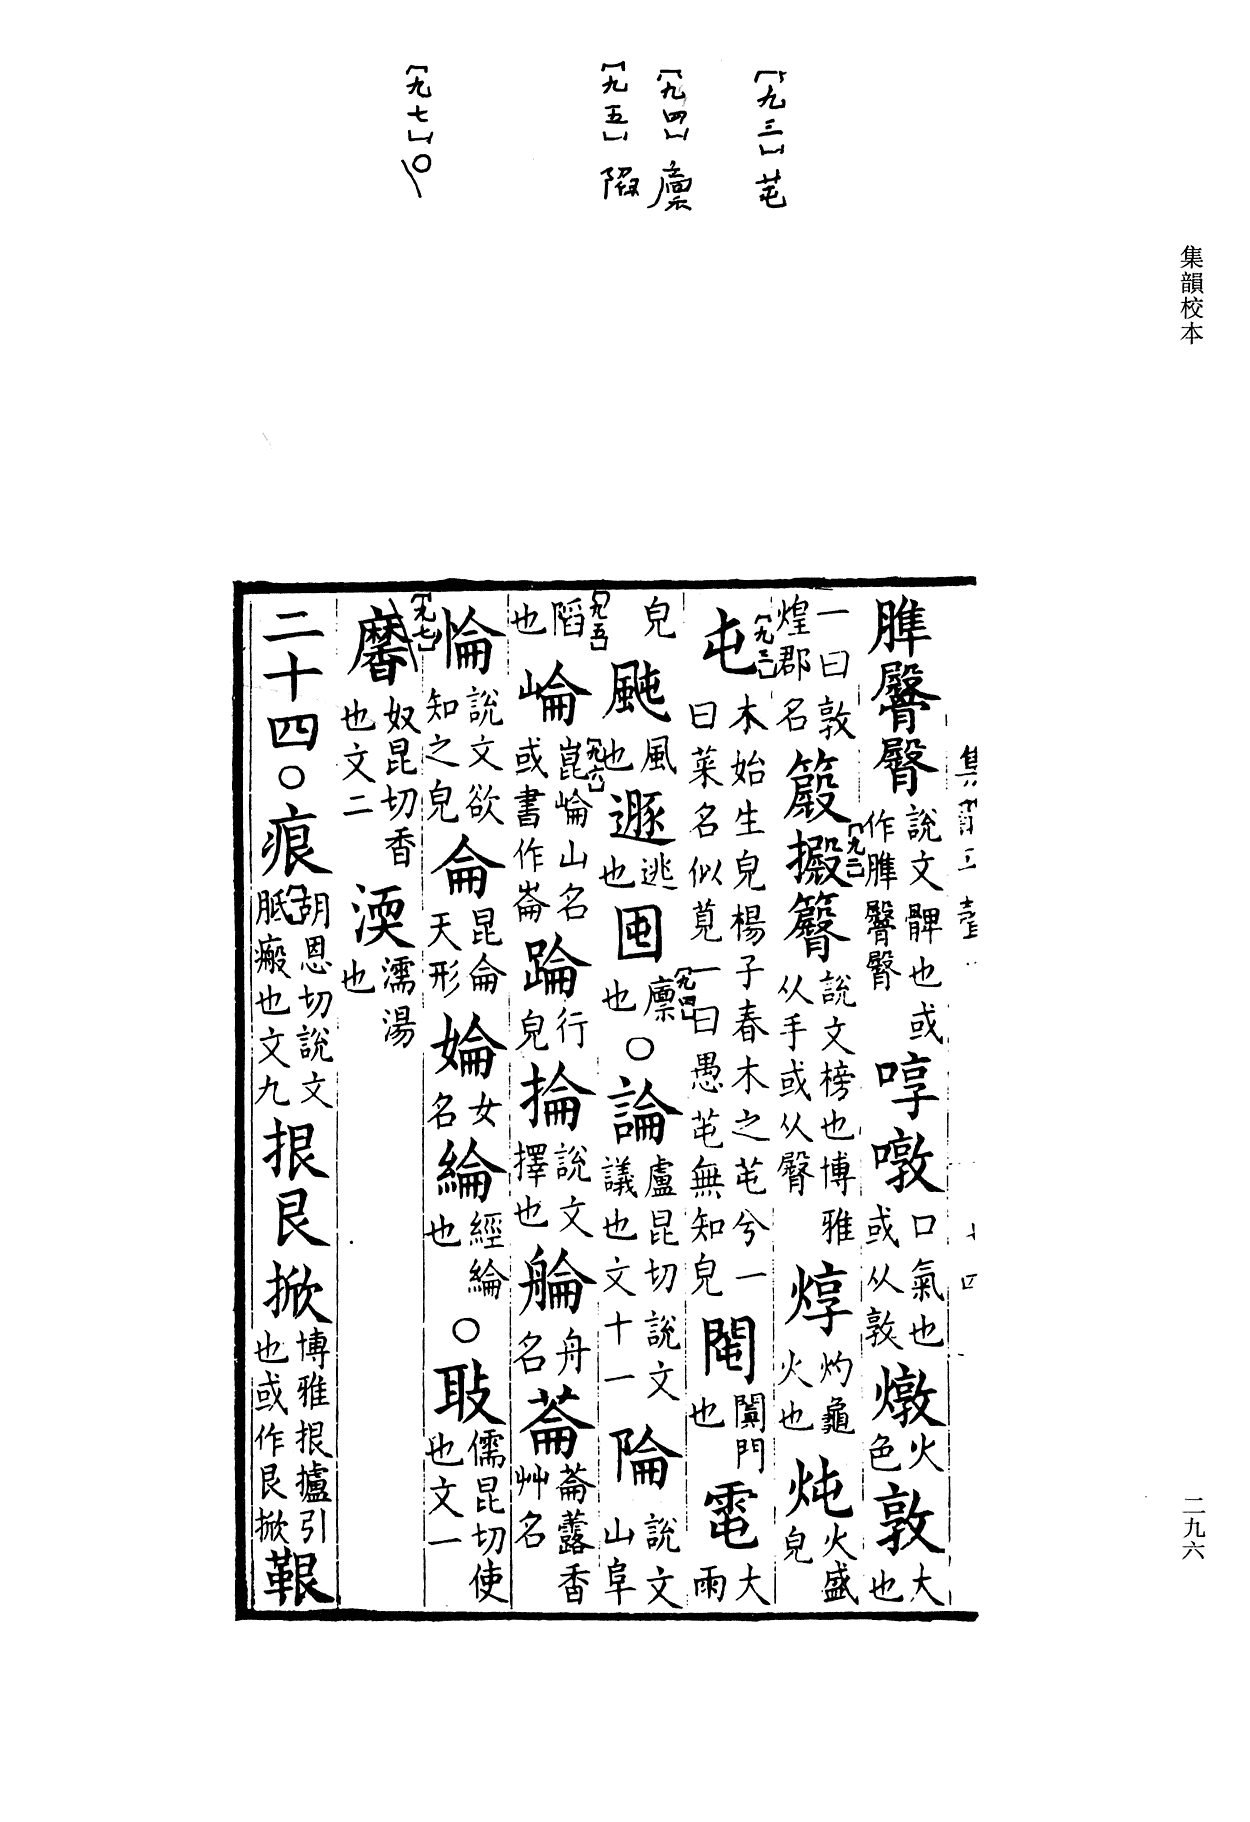 集韻校本
二九六
〔九三〕芚
〔九四〕廪
〔九五〕
〔九七〕○
脽臀臋說文髀也或作脽臀臋啍噋口氣也或从敦燉火色敦大也
一曰敦煌郡名簸說文榜也博雅从手或从臀焞灼龜火也炖火盛皃
屯〔九三〕木始生皃楊子春木之芚兮一曰菜名似莧一曰愚芚無知皃閳闐門也雷大雨
皃颵風也遯逃也囤〔九四〕廪也○論盧昆切說文議也文十一陯說文山阜
陷〔九五〕也崘〔九六〕崑崘山名或書作崙踚行皃掄說文擇也艑舟名菕菕虂香艸名
惀說文欲知之皃侖昆侖天形婨女名綸經綸也○㪏儒昆切使也文一
〔九七〕黁奴昆切香也文二渜濡湯也
二十四○痕胡恩切說文胝瘢也文九拫艮掀博雅拫攎引也或作艮掀鞎